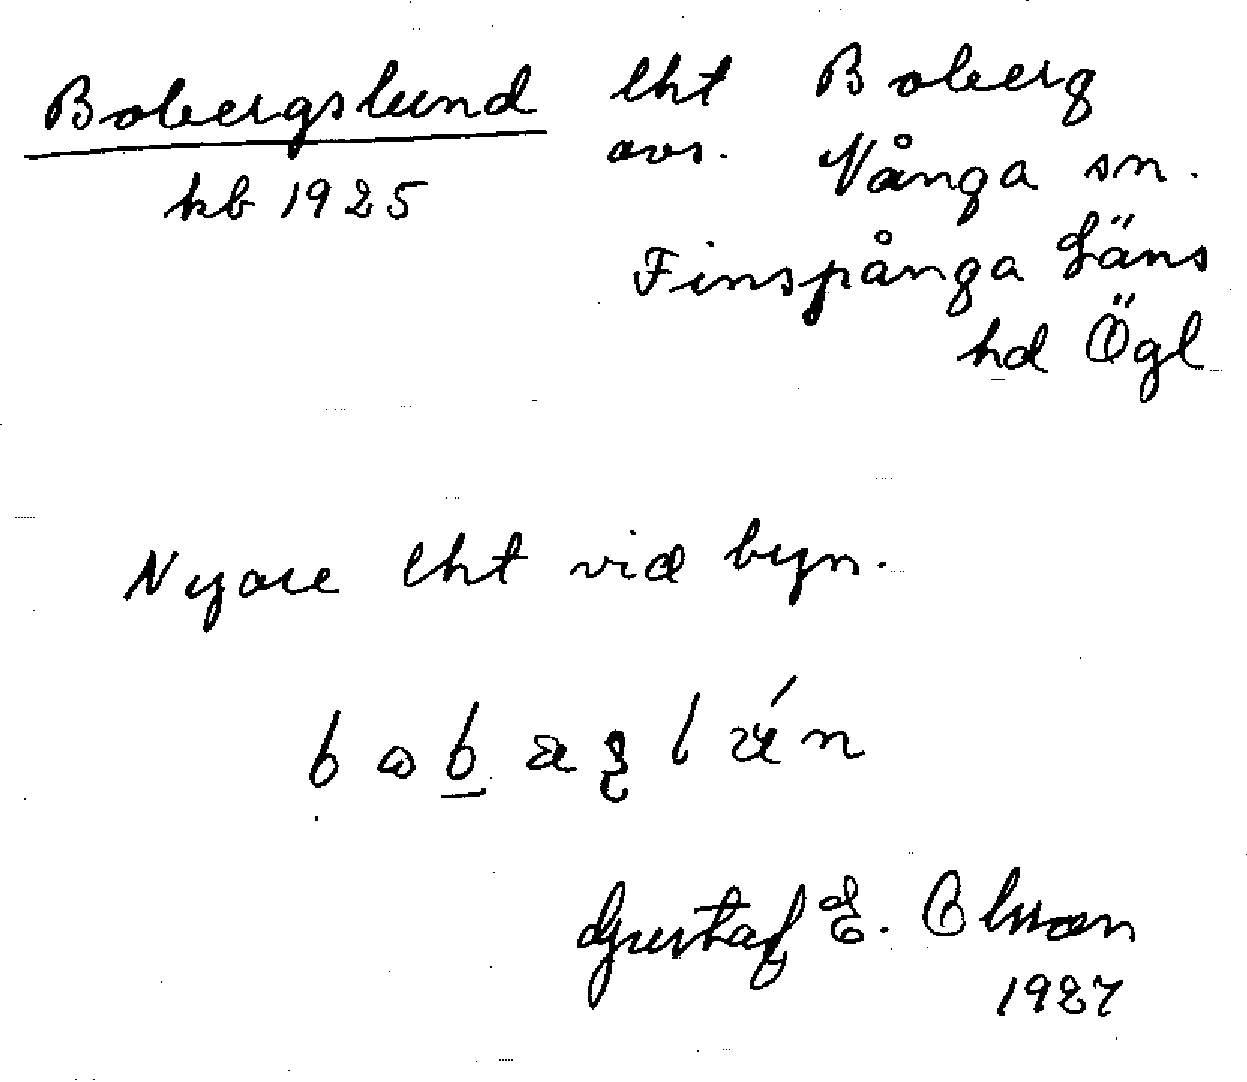 Bobergslund lht Boberg
avs. Vånga sn.
kb 1925
Finspånga Läns
hd Ögl
Nyare lht vid byn.
Gustaf E. Olsson
1927